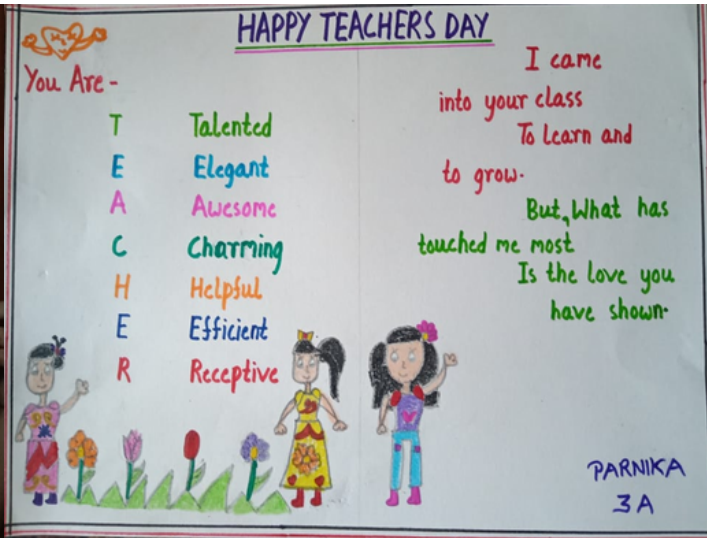 HAPPY TEACHERS DAY
You Are -
T Talented
E Elegant
A Awesome
C Charming
H Helpful
E Efficient
R Receptive
I came
into your class
To learn and
to grow.
But, What has
touched me most
Is the love you
have shown.
PARNIKA
3A